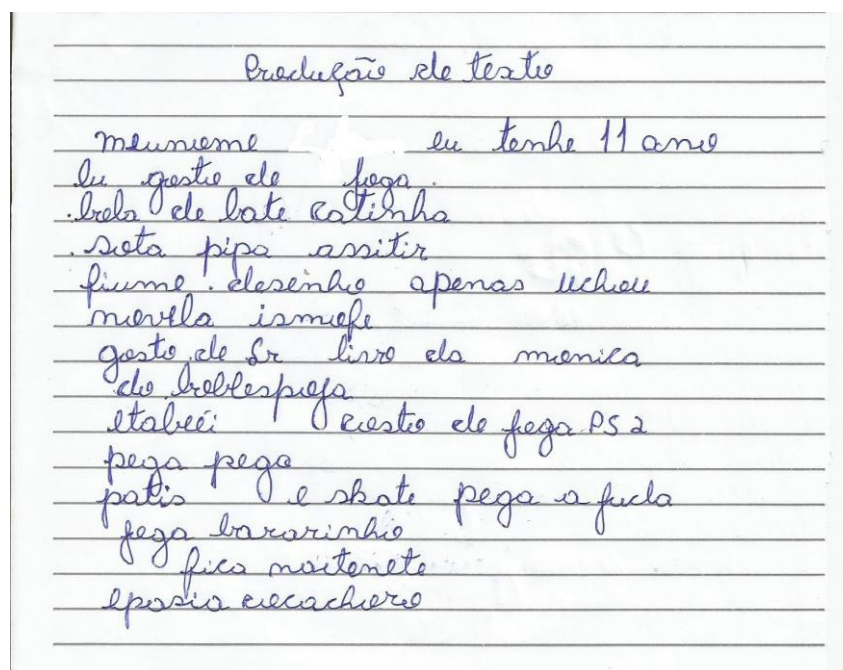 Produção de texto
meunome eu tenho 11 ano
Eu gosto de joga.
.bola de bate catinha
.sota pipa assitir
fiume. desenho apenas uchou
novela ismufe
gosto de Ler livro da monica
do bobbespoja
etabeéi costo de joga PS2
pega pega
patis e skate pega a fucla
joga bararinho
fica noitenete
epasia cocachoro